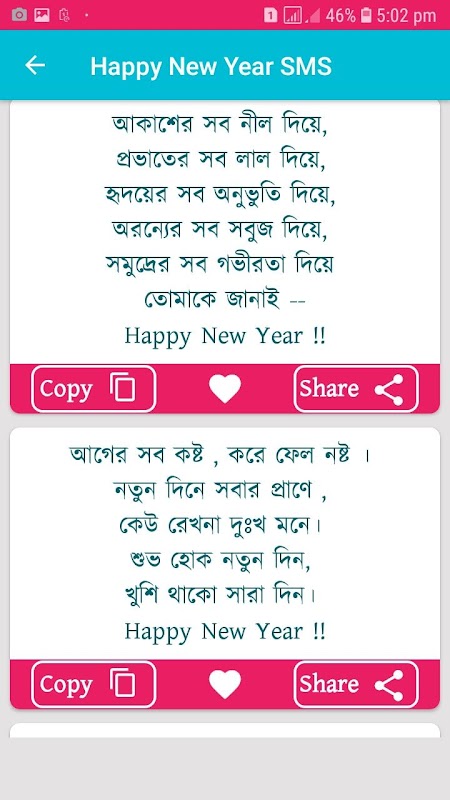 1 46% 5:02 pm
Happy New Year SMS
আকাশের সব নীল দিয়ে,
প্রভাতের সব লাল দিয়ে,
হৃদয়ের সব অনুভুতি দিয়ে,
অরন্যের সব সবুজ দিয়ে,
সমুদ্রের সব গভীরতা দিয়ে
তোমাকে জানাই --
Happy New Year !!
Copy Share
আগের সব কষ্ট , করে ফেল নষ্ট ।
নতুন দিনে সবার প্রাণে ,
কেউ রেখনা দুঃখ মনে।
শুভ হোক নতুন দিন,
খুশি থাকো সারা দিন।
Happy New Year !!
Copy Share